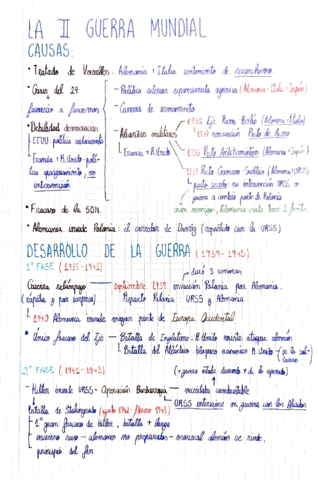 LA II GUERRA MUNDIAL
CAUSAS:
• Tratado de Versalles: Alemania + Italia sentimiento de revanchismo.
• Crisis del 29:
favorecio a fascismos
— Política exterior expansionista agresiva (Alemania - Italia - Japón)
— Carrera de armamento
• Debilidad democracias
- EEUU política aislacionista
- Francia + R.Unido polí-
tica apaciguamiento, no
intervención
— Alianzas militares
— Francia + R.Unido
1936 Eje Roma - Berlín (Alemania - Italia)
↳ 1939 Pacto de Acero
1936 Pacto Antikomintern (Alemania - Japón)
1939 Pacto Germano - Soviético (Alemania - URSS)
↳ pacto secreto: no intervención URSS en
guerra a cambio parte de Polonia
• Fracaso de la SDN.
• Alemania invade Polonia: el corredor de Danzig (repartido con la URSS)
DESARROLLO DE LA GUERRA (1939-1945)
1ª FASE (1939-1941)
duró 3 semanas
Guerra relámpago
(rápida y por sorpresa)
septiembre 1939 invasión Polonia por Alemania.
Reparto Polonia URSS y Alemania
↳ 1940 Alemania invade mayor parte de Europa Occidental
• Único fracaso del Eje — Batalla de Inglaterra: R.Unido resiste ataque alemán
↳ Batalla del Atlántico: bloqueo económico R.Unido
2ª FASE (1941-1943)
— Hitler invade URSS - Operación Barbarroja — necesitaba combustible
URSS enterarse en guerra con los Aliados
Batalla de Stalingrado (agosto 1942 - febrero 1943)
- 1er gran fracaso de Hitler, batalla + larga
- invierno ruso - alemanes no preparados - mariscal alemán se rinde,
principio del fin